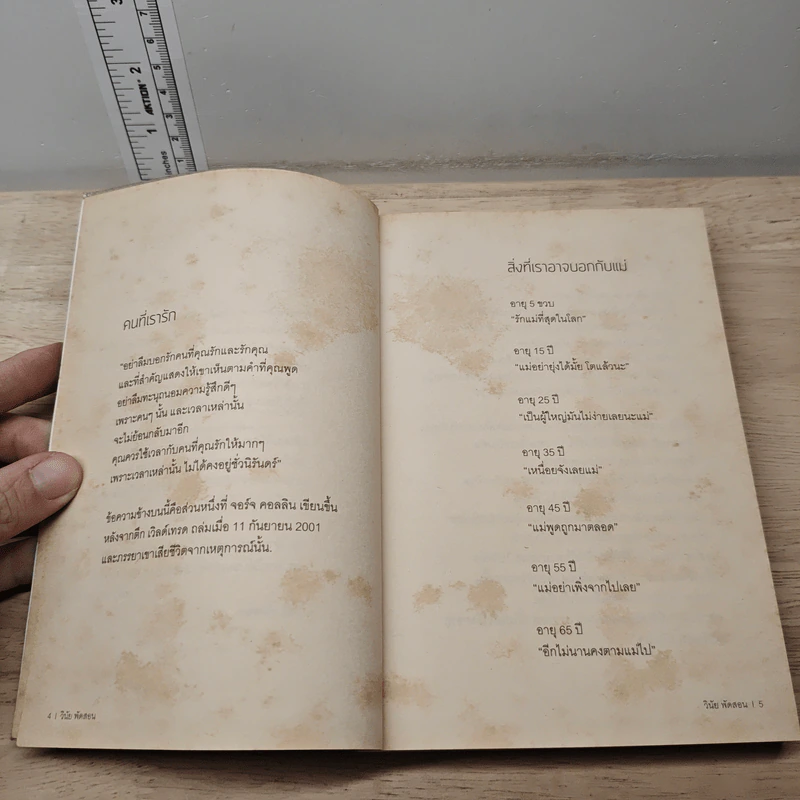 3
7
6
2
5
AKTION
4
1
3
2
inches
1
คนที่เรารัก
"อย่าลืมบอกรักคนที่คุณรักและรักคุณ
และที่สำคัญแสดงให้เขาเห็นตามคำที่คุณพูด
อย่าลืมทะนุถนอมความรู้สึกดีๆ
เพราะคนๆ นั้น และเวลาเหล่านั้น
จะไม่ย้อนกลับมาอีก
คุณควรใช้เวลากับคนที่คุณรักให้มากๆ
เพราะเวลาเหล่านั้น ไม่ได้คงอยู่ชั่วนิรันดร์"
ข้อความข้างบนนี้คือส่วนหนึ่งที่ จอร์จ คอลลิน เขียนขึ้น
หลังจากตึก เวิลด์เทรด ถล่มเมื่อ 11 กันยายน 2001
และภรรยาเขาเสียชีวิตจากเหตุการณ์นั้น.
4 | วินัย พัดสอน
สิ่งที่เราอาจบอกกับแม่
อายุ 5 ขวบ
"รักแม่ที่สุดในโลก"
อายุ 15 ปี
"แม่อย่ายุ่งได้มั้ย โตแล้วนะ"
อายุ 25 ปี
"เป็นผู้ใหญ่มันไม่ง่ายเลยนะแม่"
อายุ 35 ปี
"เหนื่อยจังเลยแม่"
อายุ 45 ปี
"แม่พูดถูกมาตลอด"
อายุ 55 ปี
"แม่อย่าเพิ่งจากไปเลย"
อายุ 65 ปี
"อีกไม่นานคงตามแม่ไป"
วินัย พัดสอน | 5